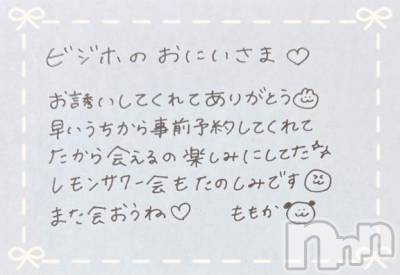 ビジホの おにいさま ♡
お誘いしてくれてありがとう
早いうちから事前予約してくれて
たから会えるの楽しみにしてた
レモンサワー会もたのしみです
また会おうね♡ ももか
nnn